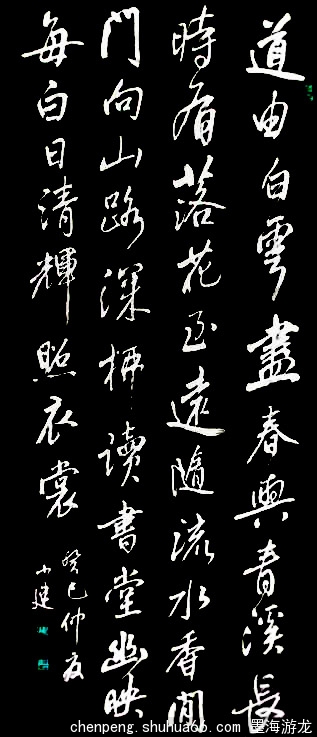 道由白雲盡春與青溪長
時有落花至遠隨流水香閒
門向山路深柳讀書堂幽映
每白日清輝照衣裳
癸巳仲夏
小建
chenpeng.shuhua66.com 墨海游龙